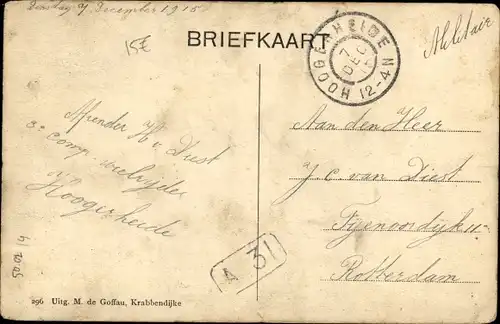 Dinsdag 7 December 1915
15E
BRIEFKAART
HOOGERHEIDE
7 DEC
12-4N
Militair
Afzender H v. Diest
comp. wielrijder
Hoogerheide
Aan den Heer
J C van Diest
Fijenoordijk
Rotterdam
A 31
50.02/4
296 Uitg. M. de Goffau, Krabbendijke